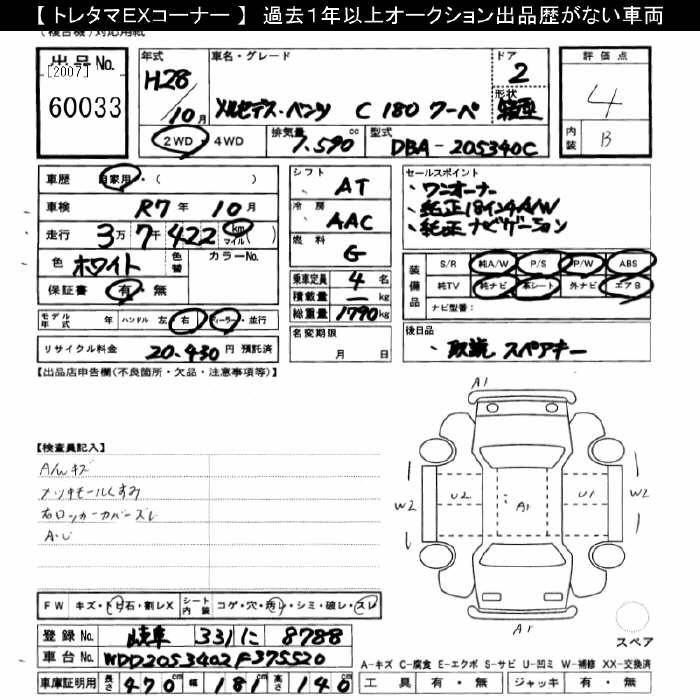 【 トレタマEXコーナー 】 過去1年以上オークション出品歴がない車両
出品No. [2007] 60033
年式 H28 10月
車名・グレード メルセデス・ベンツ C 180 クーペ
ドア 2
形状
評価点 4
内装 B
2WD ・ 4WD 排気量 1.590 cc 型式 DBA-205340C
車歴 自家用・( )
車検 R7年 10月
走行 3万7千422 km マイル( )
色 ホワイト 色替 カラーNo.
保証書 有・無
モデル年式 年 ハンドル 左 右 ディーラー・並行
リサイクル料金 20.430円 預託済
シフト AT
冷房 AAC
燃料 G
乗車定員 4名
積載量 ー kg
総重量 1790 kg
名変期限 月 日
セールスポイント
・ワンオーナー
・純正18インチA/W
・純正ナビゲーション
装備品 S/R 純A/W P/S P/W ABS
純TV 純ナビ 革シート 外ナビ エアB
ナビ型番:
後日品
・取説 スペアキー
【出品店申告欄(不良箇所・欠品・注意事項等)】
【検査員記入】
A/Wキズ
メッキモールくすみ
右ロッカーカバーズレ
A・U
A1
W2 U2 A1 U1 W2
A1
スペア
FW キズ・トビ石・割レX シート内装 コゲ・穴・汚レ・シミ・破レ・スレ
登録No. 岐阜 331 に 8788
車台No. WDD2053402F375520
車庫証明用 長さ 470cm 幅 181cm 高さ 140cm
A-キズ C-腐食 E-エクボ S-サビ U-凹ミ W-補修 XX-交換済
工具 有・無 ジャッキ 有・無